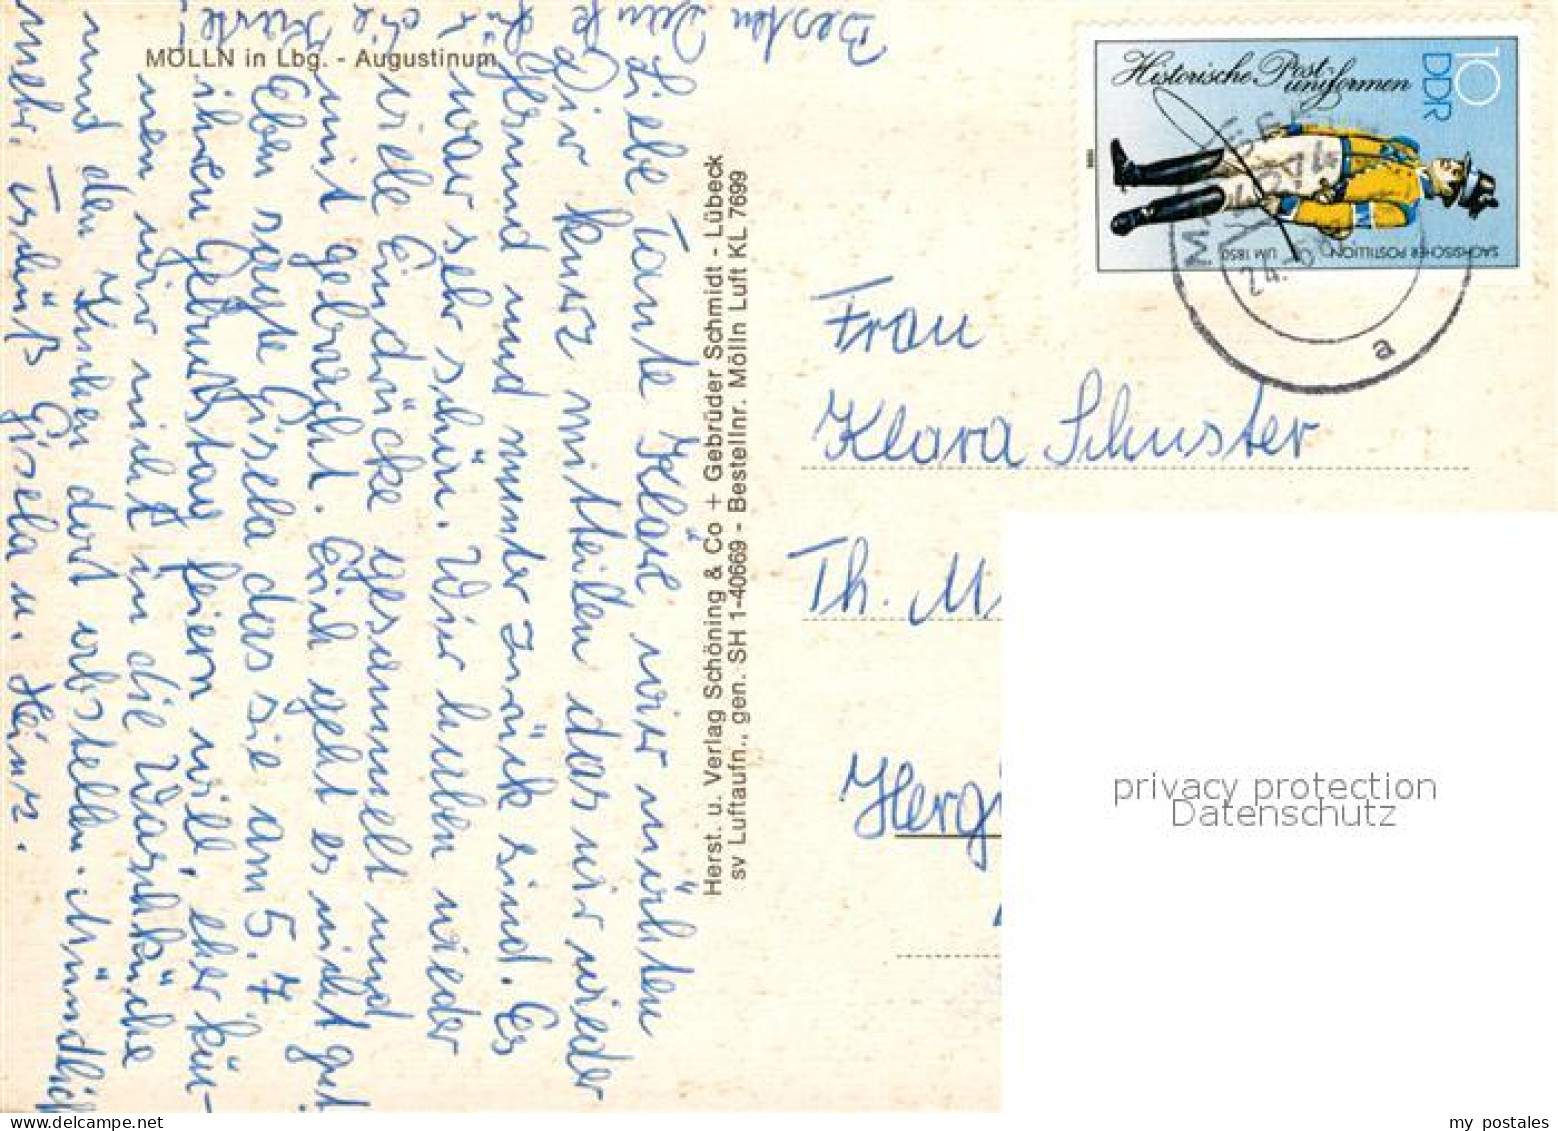 MÖLLN in Lbg. - Augustinum
Besten Dank für
die Karte!
Liebe Tante Kläre, wir möchten
Dir kurz mitteilen das wir wieder
gesund und munter zurück sind. Es
war sehr schön. Wir haben wieder
viele Eindrücke gesammelt und
mit gebracht. Erich geht es nicht gut
Eben sagte Gisela das sie am 5.7
ihren Geburtstag feiern will, eher kön-
nen wir nicht in die Waschküche
und den Kuchen dort abstellen. Mündlich
mehr. Tschüß Gisela u. Heinz.
Herst. u. Verlag Schöning & Co + Gebrüder Schmidt - Lübeck
sv Luftaufn., gen. SH 1-40669 - Bestellnr. Mölln Luft KL 7699
Historische Post-
uniformen
10
DDR
SÄCHSISCHER POSTILLION UM 1850
1986
24.
a
Frau
Klara Schuster
Th. M
Herg
privacy protection
Datenschutz
my postales